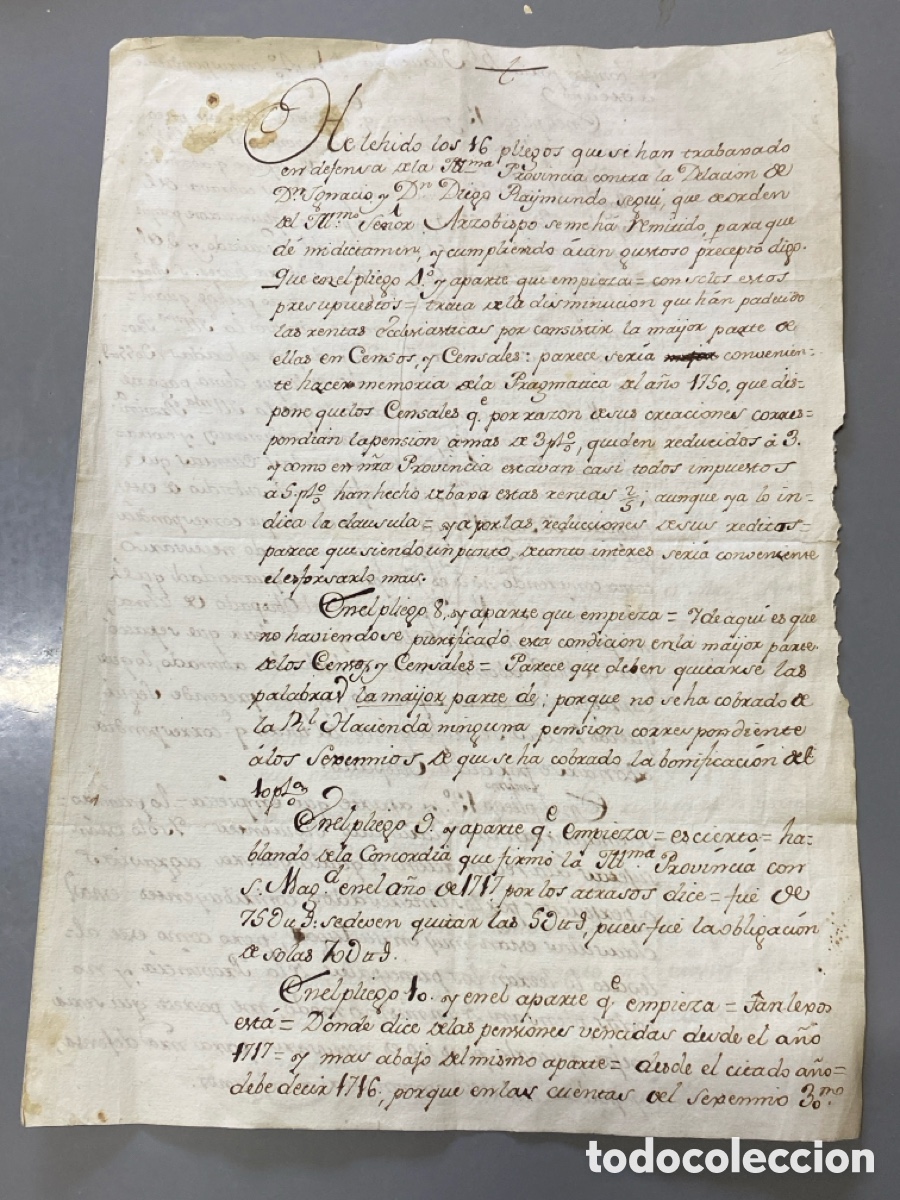 He lehido los 16 pliegos que se han trabaxado
en defensa de la Ill.ma Provincia contra la Delacion de
D.n Ignacio, y D.n Diego Raymundo Segui, que de orden
del Ill.mo Señor Arzobispo se me há remitido, para que
dé mi dictamen, y cumpliendo á tan gustoso precepto digo.
Que en el pliego 4.º y aparte que empieza = con solos estos
presupuestos = trata de la disminucion que han padecido
las rentas Ecclesiasticas por consistir la maijor parte de
ellas en Censos, y Censales: parece seria convenien=
te hacer memoria de la Pragmatica del año 1750, que dis=
pone que los Censales q.e por razon de sus creaciones corres=
pondian la pension a mas de 3 p% queden reducidos á 3.
y como en nr̃a Provincia estavan casi todos impuestos
á 5. p% han hecho de baxa estas rentas 2/5; aunque ya lo in=
dica la clausula = y a por las reducciones de sus reditos =
parece que siendo un punto de tanto interes seria conveniente
el esforsarlo mas.
En el pliego 8, y aparte que empieza = Y de aqui es que
no haviendose purificado esta condicion en la maijor parte
de los Censos, y Censales = Parece que deben quitarse las
palabras la maijor parte de; porque no se ha cobrado de
la R.l Hacienda ninguna pension correspondiente
á los Sexenios, de que se ha cobrado la bonificación del
10 p%
En el pliego 9. y aparte q.e empieza = es cierto = ha=
blando de la Concordia que firmó la Ill.ma Provincia con
S. Mag.d en el año de 1717 por los atrasos dice = fué de
75 D u d: se deven quitar las 5 D u d, pues fué la obligación
de solas 70 D u d.
En el pliego 10. y en el aparte q.e empieza = Tan lexos
está = Donde dice de las pensiones vencidas desde el año
1717 = y mas abajo del mismo aparte = desde el citado año =
debe decir 1716, porque en las cuentas del Sexenio 3.mo
todocoleccion.net